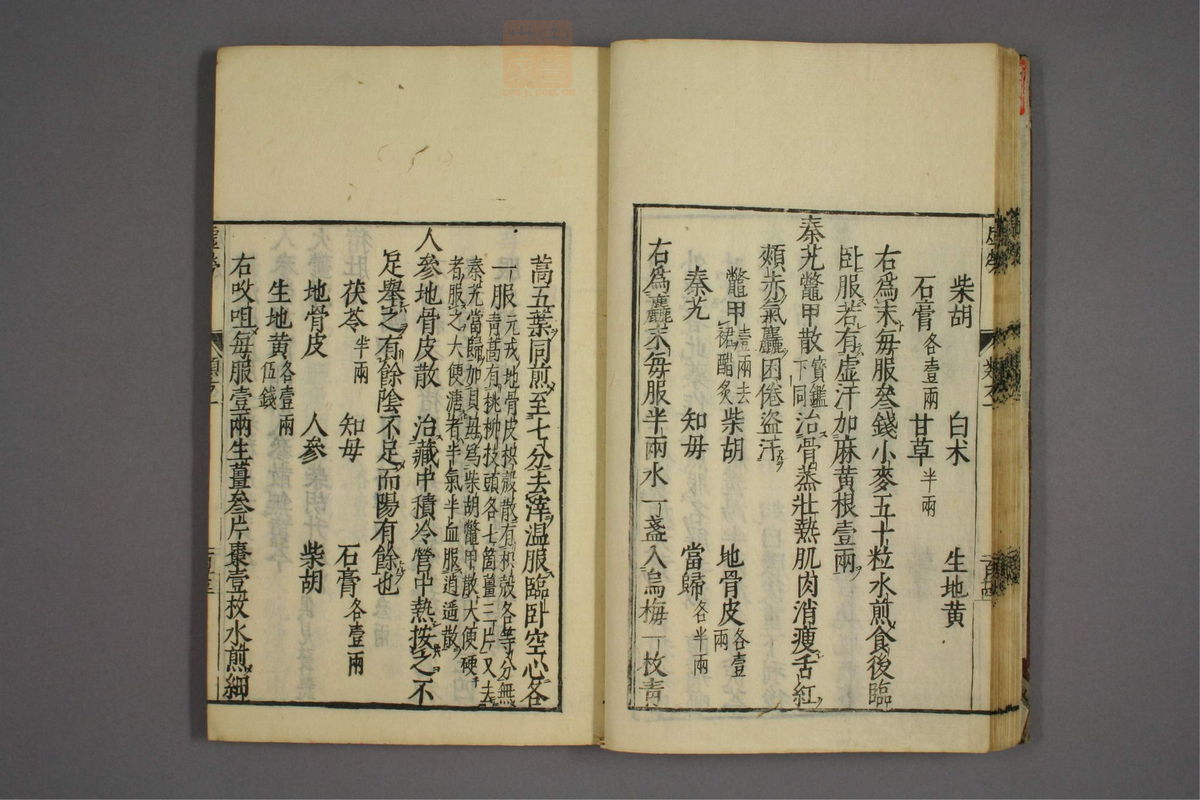 柴胡　白朮　生地黄
石膏各壹兩　甘草半兩
右爲末每服叄錢小麥五十粒水煎食後臨
卧服若有虚汗加麻黄根壹兩
秦艽鱉甲散寳鑑下同治骨蒸壯熱肌肉消瘦舌紅
頰赤氣麤困倦盗汗
鱉甲壹兩去裙醋炙　柴胡　地骨皮各壹兩
秦艽　知母　當歸各半兩
右爲麤末每服半兩水一盞入烏梅一枚青
蒿五葉同煎至七分去滓温服臨卧空心各
一服元戎地骨皮枳殼散有枳殼各等分無
青蒿有桃柳枝頭各七箇薑三片又去
秦艽當歸加貝母爲柴胡鱉甲散大便硬
者服之大便溏者半氣半血服逍遥散
人參地骨皮散　治藏中積冷營中熱按之不
足舉之有餘陰不足而陽有餘也
茯苓半兩　知母　石膏各壹兩
地骨皮　人參　柴胡
生地黄各壹兩伍錢
右㕮咀每服壹兩生薑叄片棗壹枚水煎細